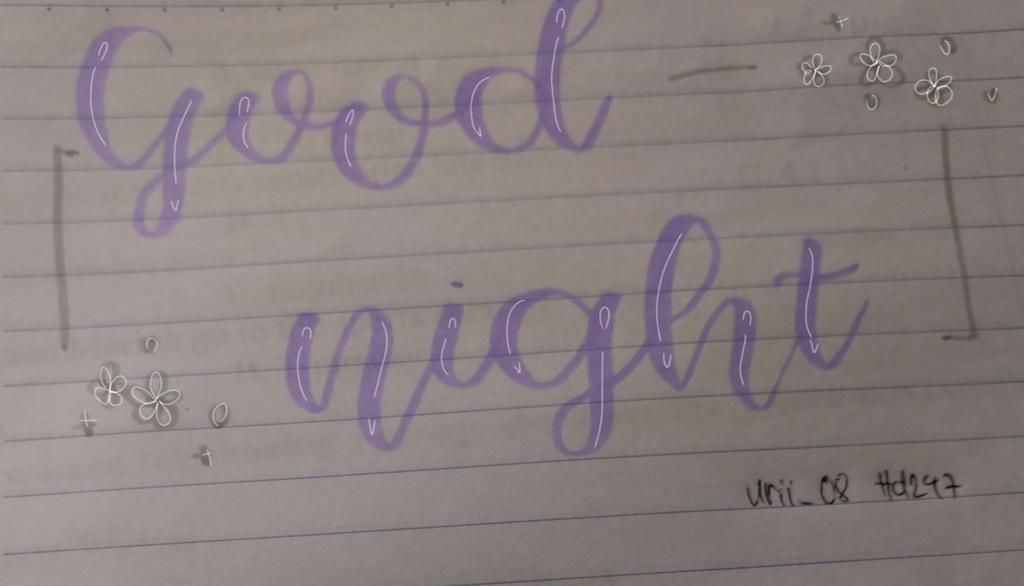 Good
night
Urii_08 Hd247